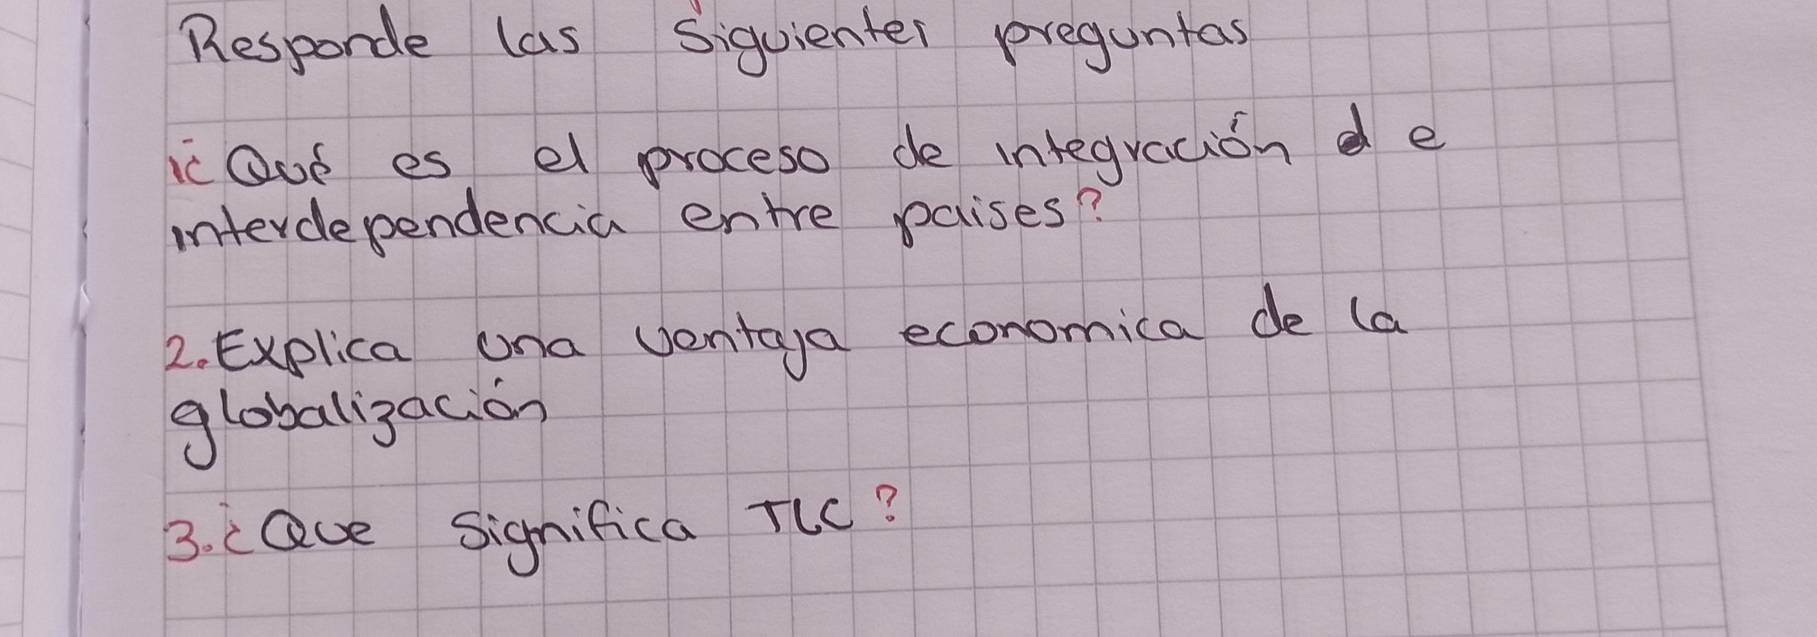 Responde las siguientes preguntas
1¿Qué es el proceso de integración de
interdependencia entre paises?
2. Explica una ventaja economica de la
globalización
3. ¿Que significa TLC?